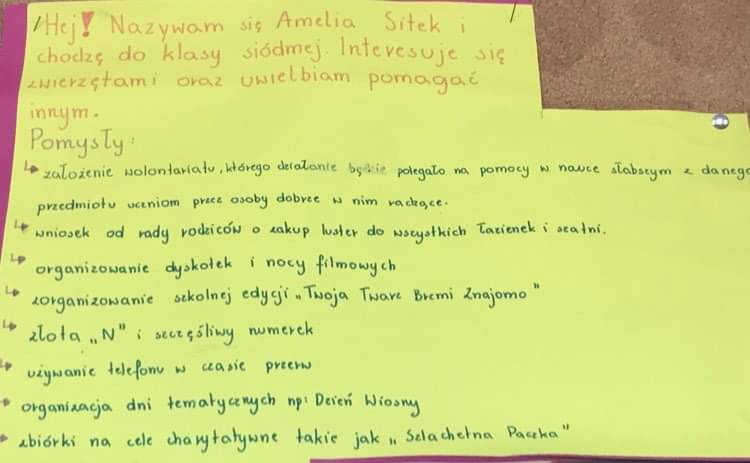 Hej! Nazywam się Amelia Sitek i
chodzę do klasy siódmej. Interesuje się
zwierzętami oraz uwielbiam pomagać
innym.
Pomysły:
↳ założenie wolontariatu, którego działanie będzie polegało na pomocy w nauce słabszym z danego
przedmiotu uczniom przez osoby dobrze w nim radzące.
↳ wniosek od rady rodziców o zakup luster do wszystkich łazienek i szatni.
↳ organizowanie dyskotek i nocy filmowych
↳ zorganizowanie szkolnej edycji „Twoja Twarz Brzmi Znajomo"
↳ złota „N" i szczęśliwy numerek
↳ używanie telefonu w czasie przerw
↳ organizacja dni tematycznych np: Dzień Wiosny
↳ zbiórki na cele charytatywne takie jak „Szlachetna Paczka"